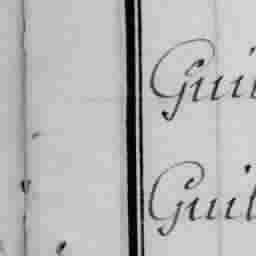 Gui
Guil